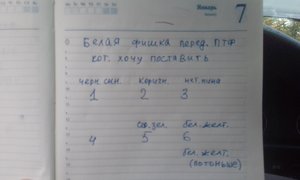 Январь
7
Белая фишка перед. ПТФ
кот. хочу поставить
черн. син. коричн.
1 2 3
сер. зел. бел. желт.
4 5 6
бел. желт.
(потоньше)